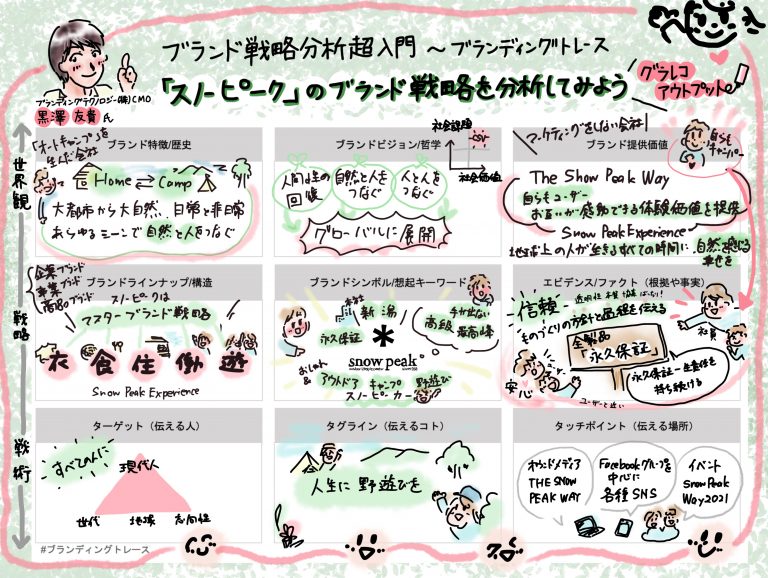 ブランド戦略分析超入門 〜ブランディングトレース
「スノーピーク」のブランド戦略を分析してみよう
グラレコ
アウトプット
ブランディングテクノロジー(株)CMO
黒澤 友貴 氏
世界観
戦略
戦術
「オートキャンプ」を
生んだ会社
ブランド特徴/歴史
Home ⇄ Camp
大都市から大自然、日常と非日常
あらゆるシーンで自然と人をつなぐ
ブランドビジョン/哲学
社会課題
CSV
社会価値
人間性の
回復
自然と人を
つなぐ
人と人を
つなぐ
グローバルに展開
マーケティングをしない会社
ブランド提供価値
自らも
キャンパー
The Snow Peak Way
自らもユーザー
お互いが感動できる体験価値を提供
Snow Peak Experience
地球上の人が生きるすべての時間に、自然を感じる
幸せを
ブランドラインナップ/構造
企業ブランド
事業ブランド
商品ブランド
スノーピークは
マスターブランド戦略
衣 食 住 働 遊
Snow Peak Experience
ブランドシンボル/想起キーワード
本社
新潟
永久保証
手が出ない
高級 最高峰
snow peak
おしゃれ
&
アウトドア キャンプ 野遊び
スノーピーカー
エビデンス/ファクト（根拠や事実）
信頼
ものづくりの方針と品質を伝える
社員
全製品
「永久保証」
安心
永久保証＝生産性を
持ち続ける
ユーザーと近い
ターゲット（伝える人）
すべての人に
現代人
世代 地域 志向性
タグライン（伝えるコト）
人生に 野遊びを
タッチポイント（伝える場所）
オウンドメディア
THE SNOW
PEAK WAY
Facebookグループを
中心に
各種SNS
イベント
Snow Peak
Way2021
#ブランディングトレース